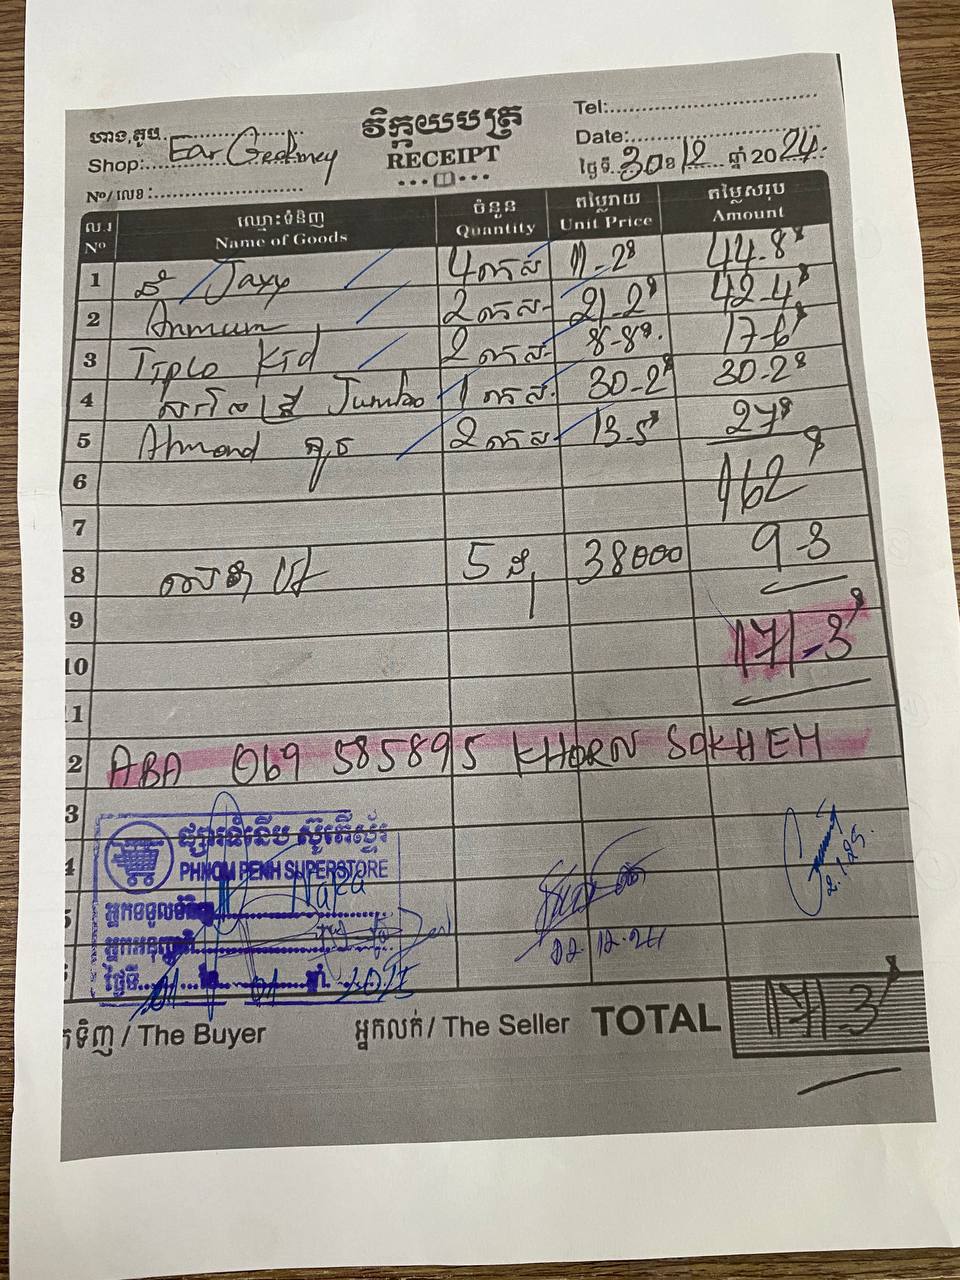 ហាង,តូប
វិក្កយបត្រ
Tel:
Shop: Ear
RECEIPT
Date:
ថ្ងៃទី 30 ខ 12 ឆ្នាំ 2024
Nº/លេខ:
ល.រ ឈ្មោះទំនិញ ចំនួន តម្លៃរាយ តម្លៃសរុប
Nº Name of Goods Quantity Unit Price Amount
1 Jaxy 4 កេស 11-2$ 44.8$
2 Anmum 2 កេស 21-2$ 42-4$
3 Triple Kid 2 កេស 8-8$ 17-6$
4 Jumbo 1 កេស 30-2$ 30-2$
5 Almond តូច 2 កេស 13-5$ 27$
6 162$
7
8 5 38000 9-3
9
10 171-3$
11
2 ABA 069 585895 KHORN SOKHEM
3
ផ្សារទំនើប ស៊ុបើស្ទ័រ
4 PHNOM PENH SUPERSTORE
2.1.25
អ្នកទទួលទំនិញ
5 អ្នកអនុញ្ញាតិ
02.12.24
ថ្ងៃទី 01 ខែ 01 ឆ្នាំ 2025
កទិញ / The Buyer អ្នកលក់ / The Seller TOTAL 171-3$